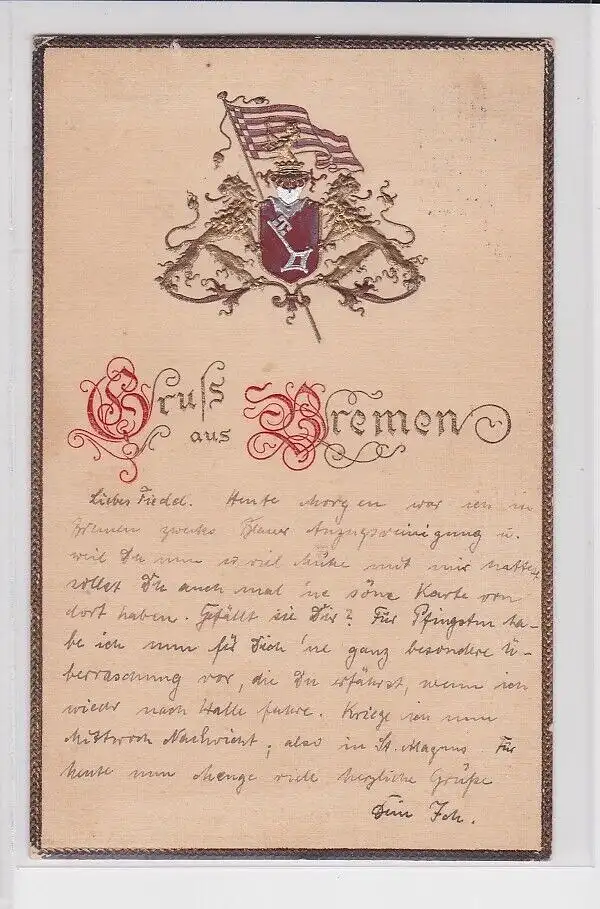 Gruss
aus Bremen
Liebes Fiedel. Heute Morgen war ich in
Bremen zwecks Blauer Anzugsreinigung u.
weil Du nun so viel Mühe mit mir hattest
sollst Du auch mal 'ne söne Karte von
dort haben. Gefällt sie Dir? Für Pfingsten ha-
be ich nun für Dich 'ne ganz besondere Ü-
berraschung vor, die Du erfährst, wenn ich
wieder nach Halle fahre. Kriege ich nun
Mittwoch Nachricht, also in St. Magnus. Für
heute nun Menge viele herzliche Grüße
Dein Joh.